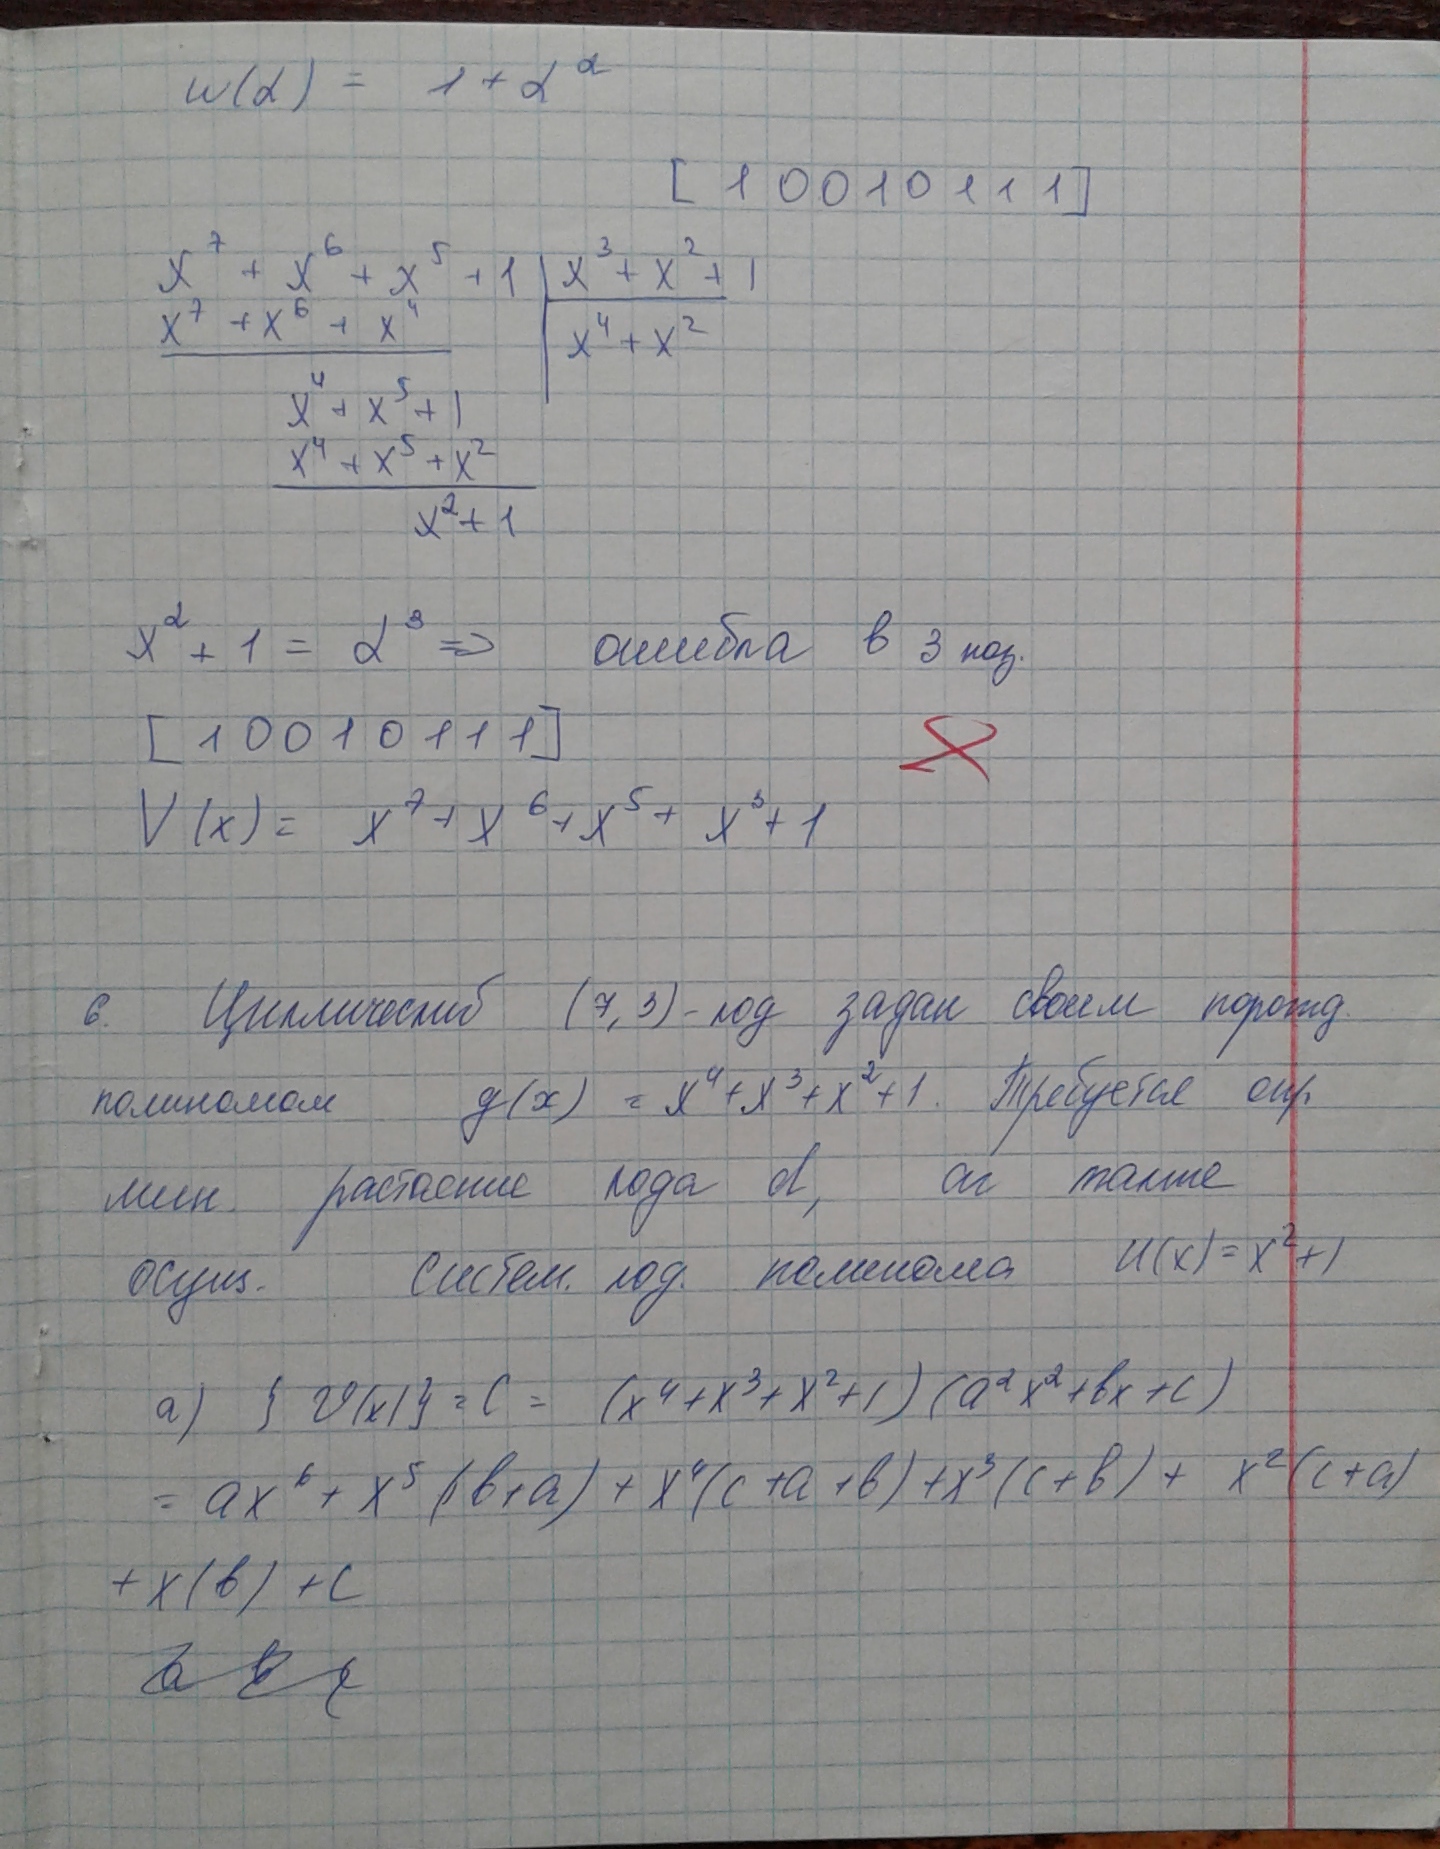 w(α) = 1 + α²
[ 1 0 0 1 0 1 1 1 ]
x⁷ + x⁶ + x⁵ + 1 | x³ + x² + 1
x⁷ + x⁶ + x⁴ | x⁴ + x²
x⁴ + x⁵ + 1
x⁴ + x⁵ + x²
x² + 1
x² + 1 = α³ => ошибка в 3 поз.
[ 1 0 0 1 0 1 1 1 ]
V(x) = x⁷ + x⁶ + x⁵ + x³ + 1
6. Циклический (7, 3) - код задан своим порожд.
полиномом g(x) = x⁴ + x³ + x² + 1. Требуется опр.
мин. растояние кода d, а также
осущ. систем. код. полинома u(x) = x² + 1
а) { v(x) } = C = (x⁴ + x³ + x² + 1) (a²x² + bx + c)
= ax⁶ + x⁵ (b + a) + x⁴ (c + a + b) + x³ (c + b) + x² (c + a)
+ x (b) + c
a b c